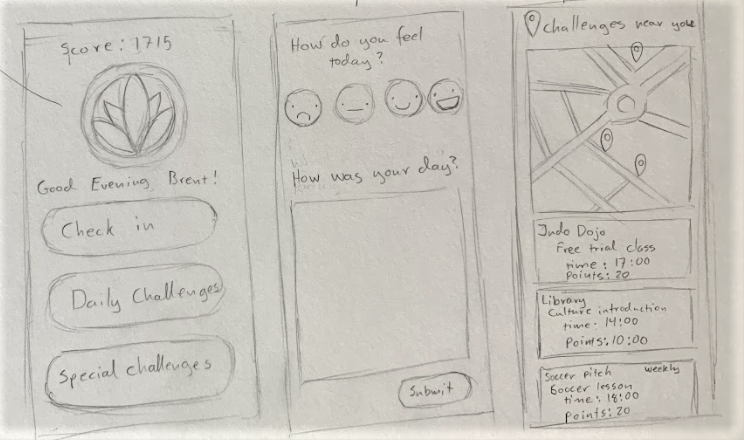 Score: 1715
Good Evening Brent!
Check in
Daily Challenges
Special challenges
How do you feel
today?
How was your day?
Submit
Challenges near you
Judo Dojo
Free trial class
time: 17:00
Points: 20
Library
Culture introduction
time: 14:00
Points: 10:00
Soccer pitch weekly
Soccer lesson
time: 18:00
Points: 20